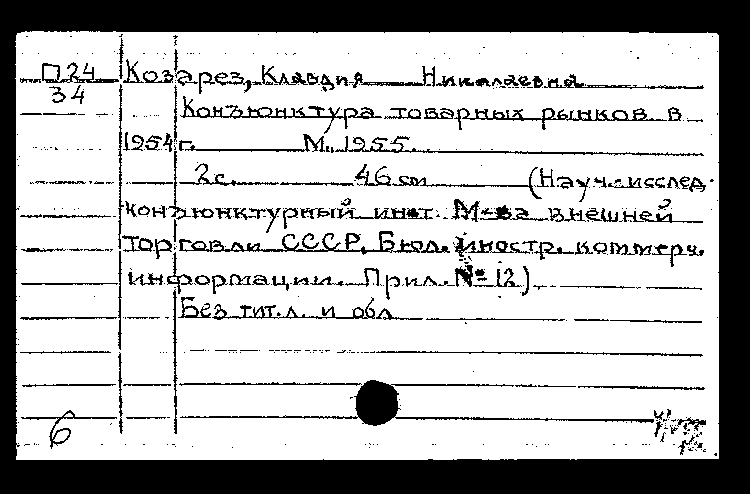 П24
34
Козарез, Клавдия Николаевна
Конъюнктура товарных рынков в
1954 г. М. 1955.
2с. 46 см (Науч.-исслед.
конъюнктурный инст. М-ва внешней
торговли СССР. Бюл. иностр. коммерч.
информации. Прил. № 12).
Без тит.л. и обл
6